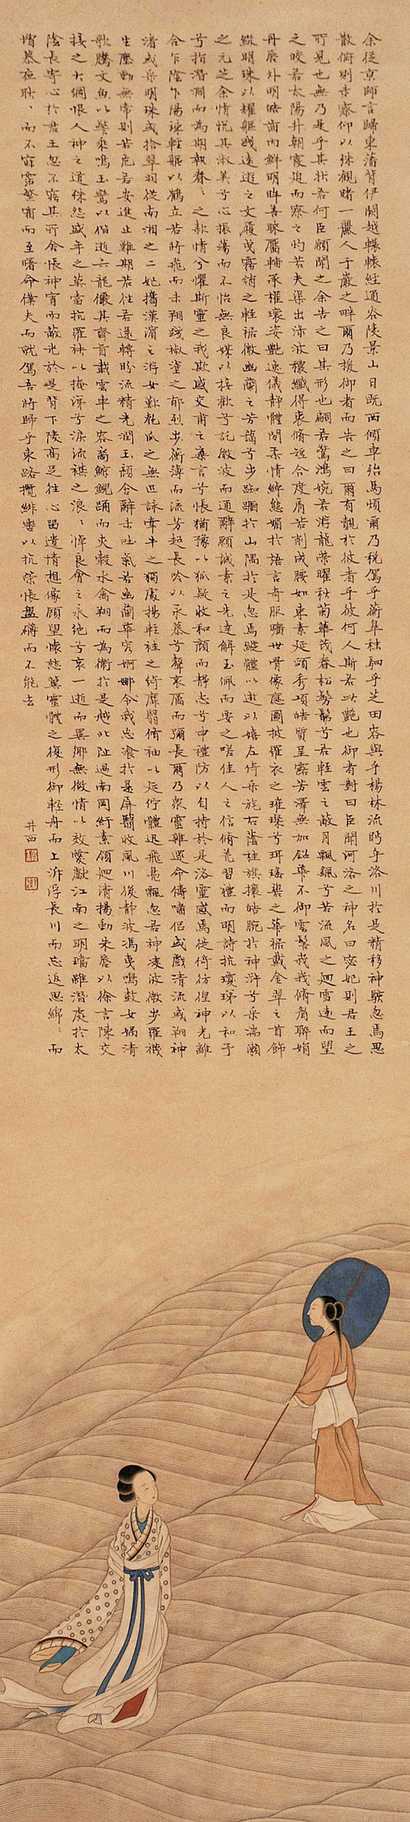 余從京師言歸東藩背伊闕越轘轅經通谷陵景山日既西傾車殆馬煩爾乃稅駕乎蘅皋秣駟乎芝田容與乎楊林流眄乎洛川於是精移神駭忽焉思
散俯則未察仰以殊觀睹一麗人于巖之畔爾乃援御者而告之曰爾有覿於彼者乎彼何人斯若此艷也御者對曰臣聞河洛之神名曰宓妃則君王之
所見也無乃是乎其狀若何臣願聞之余告之曰其形也翩若驚鴻婉若游龍榮曜秋菊華茂春松髣髴兮若輕雲之蔽月飄颻兮若流風之迴雪遠而望
之皎若太陽升朝霞迫而察之灼若芙蕖出淥波穠纖得衷脩短合度肩若削成腰如束素延頸秀項皓質呈露芳澤無加鉛華不御雲髻峩峩脩眉聯娟
丹唇外朗皓齒內鮮明眸善睞靨輔承權瓌姿艷逸儀靜體閑柔情綽態媚於語言奇服曠世骨像應圖披羅衣之璀璨兮珥瑤碧之華裾戴金翠之首飾
綴明珠以耀軀踐遠遊之文履曳霧綃之輕裾微幽蘭之芳藹兮步踟躕於山隅於是忽焉縱體以遨以嬉左倚采旄右蔭桂旗攘皓腕於神滸兮采湍瀨
之元芝余情悅其淑美兮心振蕩而不怡無良媒以接歡兮託微波而通辭願誠素之先達解玉佩而要之嗟佳人之信脩羌習禮而明詩抗瓊珶以和予
兮指潛淵而為期執眷々之款情兮懼斯靈之我欺感交甫之棄言兮悵猶豫以狐疑收和顏而靜志兮申禮防以自持於是洛靈感焉徙倚彷徨神光離
合乍陰乍陽竦輕軀以鶴立若將飛而未翔踐椒塗之郁烈步蘅薄而流芳超長吟以永慕兮聲哀厲而彌長爾乃眾靈雜遝命儔嘯侶或戲清流或翔神
渚或采明珠或拾翠羽從南湘之二妃攜漢濱之游女歎匏瓜之無匹詠牽牛之獨處揚輕袿之綺靡翳脩袖以延佇體迅飛鳧飄忽若神凌波微步羅襪
生塵動無常則若危若安進止難期若往若還轉眄流精光潤玉顏含辭未吐氣若幽蘭華容婀娜令我忘飡於是屏翳收風川后靜波馮夷鳴鼓女媧清
歌騰文魚以警乘鳴玉鸞以偕逝六龍儼其齊首載雲車之容裔鯨鯢踊而夾轂水禽翔而為衛於是越北沚過南岡紆素領迴清揚動朱唇以徐言陳交
接之大綱恨人神之道殊怨盛年之莫當抗羅袂以掩涕兮淚流襟之浪々悼良會之永絕兮哀一逝而異鄉無微情以效愛獻江南之明璫雖潛處於太
陰長寄心於君王忽不寤其所舍悵神宵而蔽光於是背下陵高足往心留遺情想像顧望懷愁冀靈體之復形御輕舟而上泝浮長川而忘返思綿々而
增慕夜耿々而不寐霑繁霜而至曙命僕夫而就駕吾將歸乎東路攬騑轡以抗策悵盤磗而不能去
井西